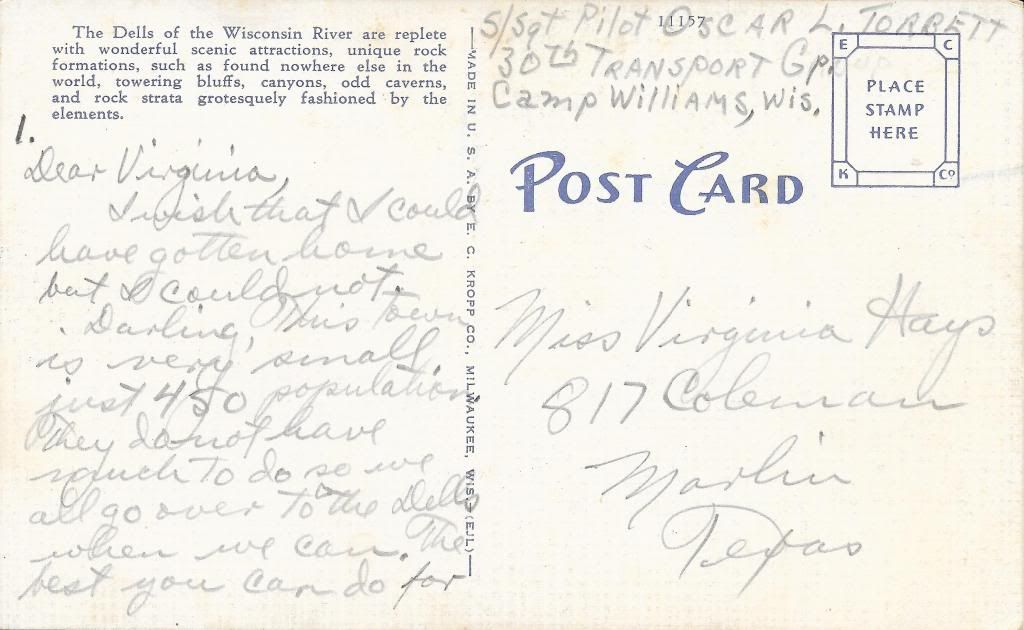 The Dells of the Wisconsin River are replete
with wonderful scenic attractions, unique rock
formations, such as found nowhere else in the
world, towering bluffs, canyons, odd caverns,
and rock strata grotesquely fashioned by the
elements.
1.
Dear Virginia,
I wish that I could
have gotten home
but I could not.
Darling, This town
is very small,
just 450 population.
They do not have
much to do so we
all go over to the Dells
when we can. The
best you can do for
MADE IN U. S. A. BY E. C. KROPP CO., MILWAUKEE, WIS. (EJL)
11157
S/Sgt Pilot OSCAR L. TORRETT
30th TRANSPORT Group
Camp WILLIAMS, Wis.
E C
PLACE
STAMP
HERE
K Co
POST CARD
Miss Virginia Hays
817 Coleman
Marlin
Texas